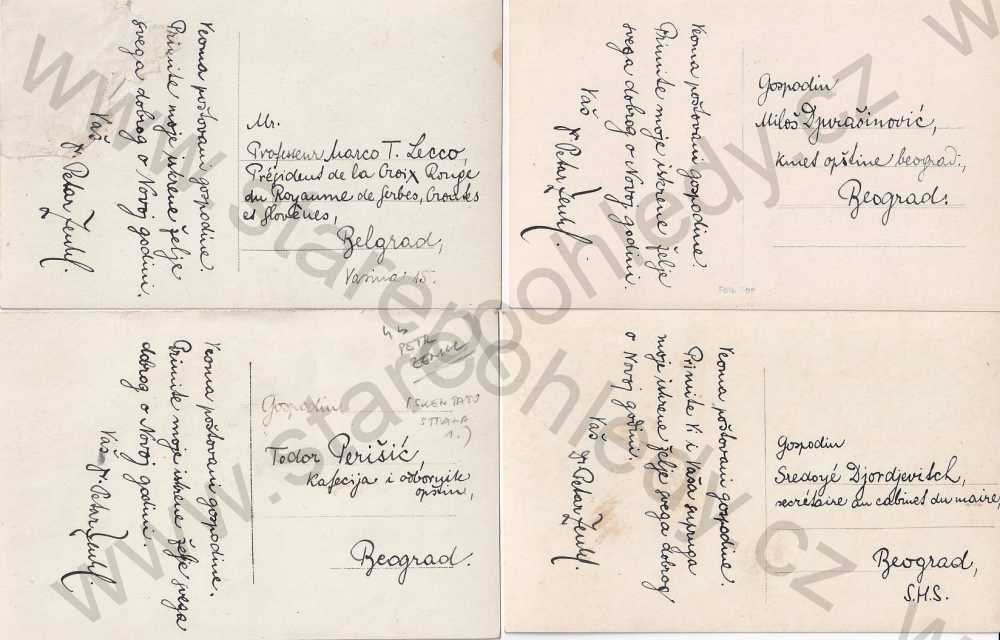 Veoma poštovani gospodine.
Primite moje iskrene želje
svega dobrog o Novoj godini.
Vaš Dr. Petar Zenkl.
Mr.
Professeur Marco T. Lecco,
Président de la Croix Rouge
du Royaume de Serbes, Croates
et Slovènes,
Belgrad,
Vasina 15.
Veoma poštovani gospodine.
Primite moje iskrene želje
svega dobrog o Novoj godini.
Vaš Dr. Petar Zenkl.
Gospodin
Miloš Djurašinović,
kmet opštine beograd.,
Beograd.
Veoma poštovani gospodine.
Primite moje iskrene želje svega
dobrog o Novoj godini.
Vaš Dr. Petar Zenkl.
PETR
ZENKL
Gospodin
Todor Perišić
kafecija i odbornik
opštin,
Beograd.
Veoma poštovani gospodine.
Primite Vi i Vaša supruga
moje iskrene želje svega dobrog
o Novoj godini.
Vaš Dr. Petar Zenkl.
Gospodin
Sredoyé Djordjevitch,
secrétaire au cabinet du maire,
Beograd,
S.H.S.
www.starepohledy.cz
www.starepohledy.cz